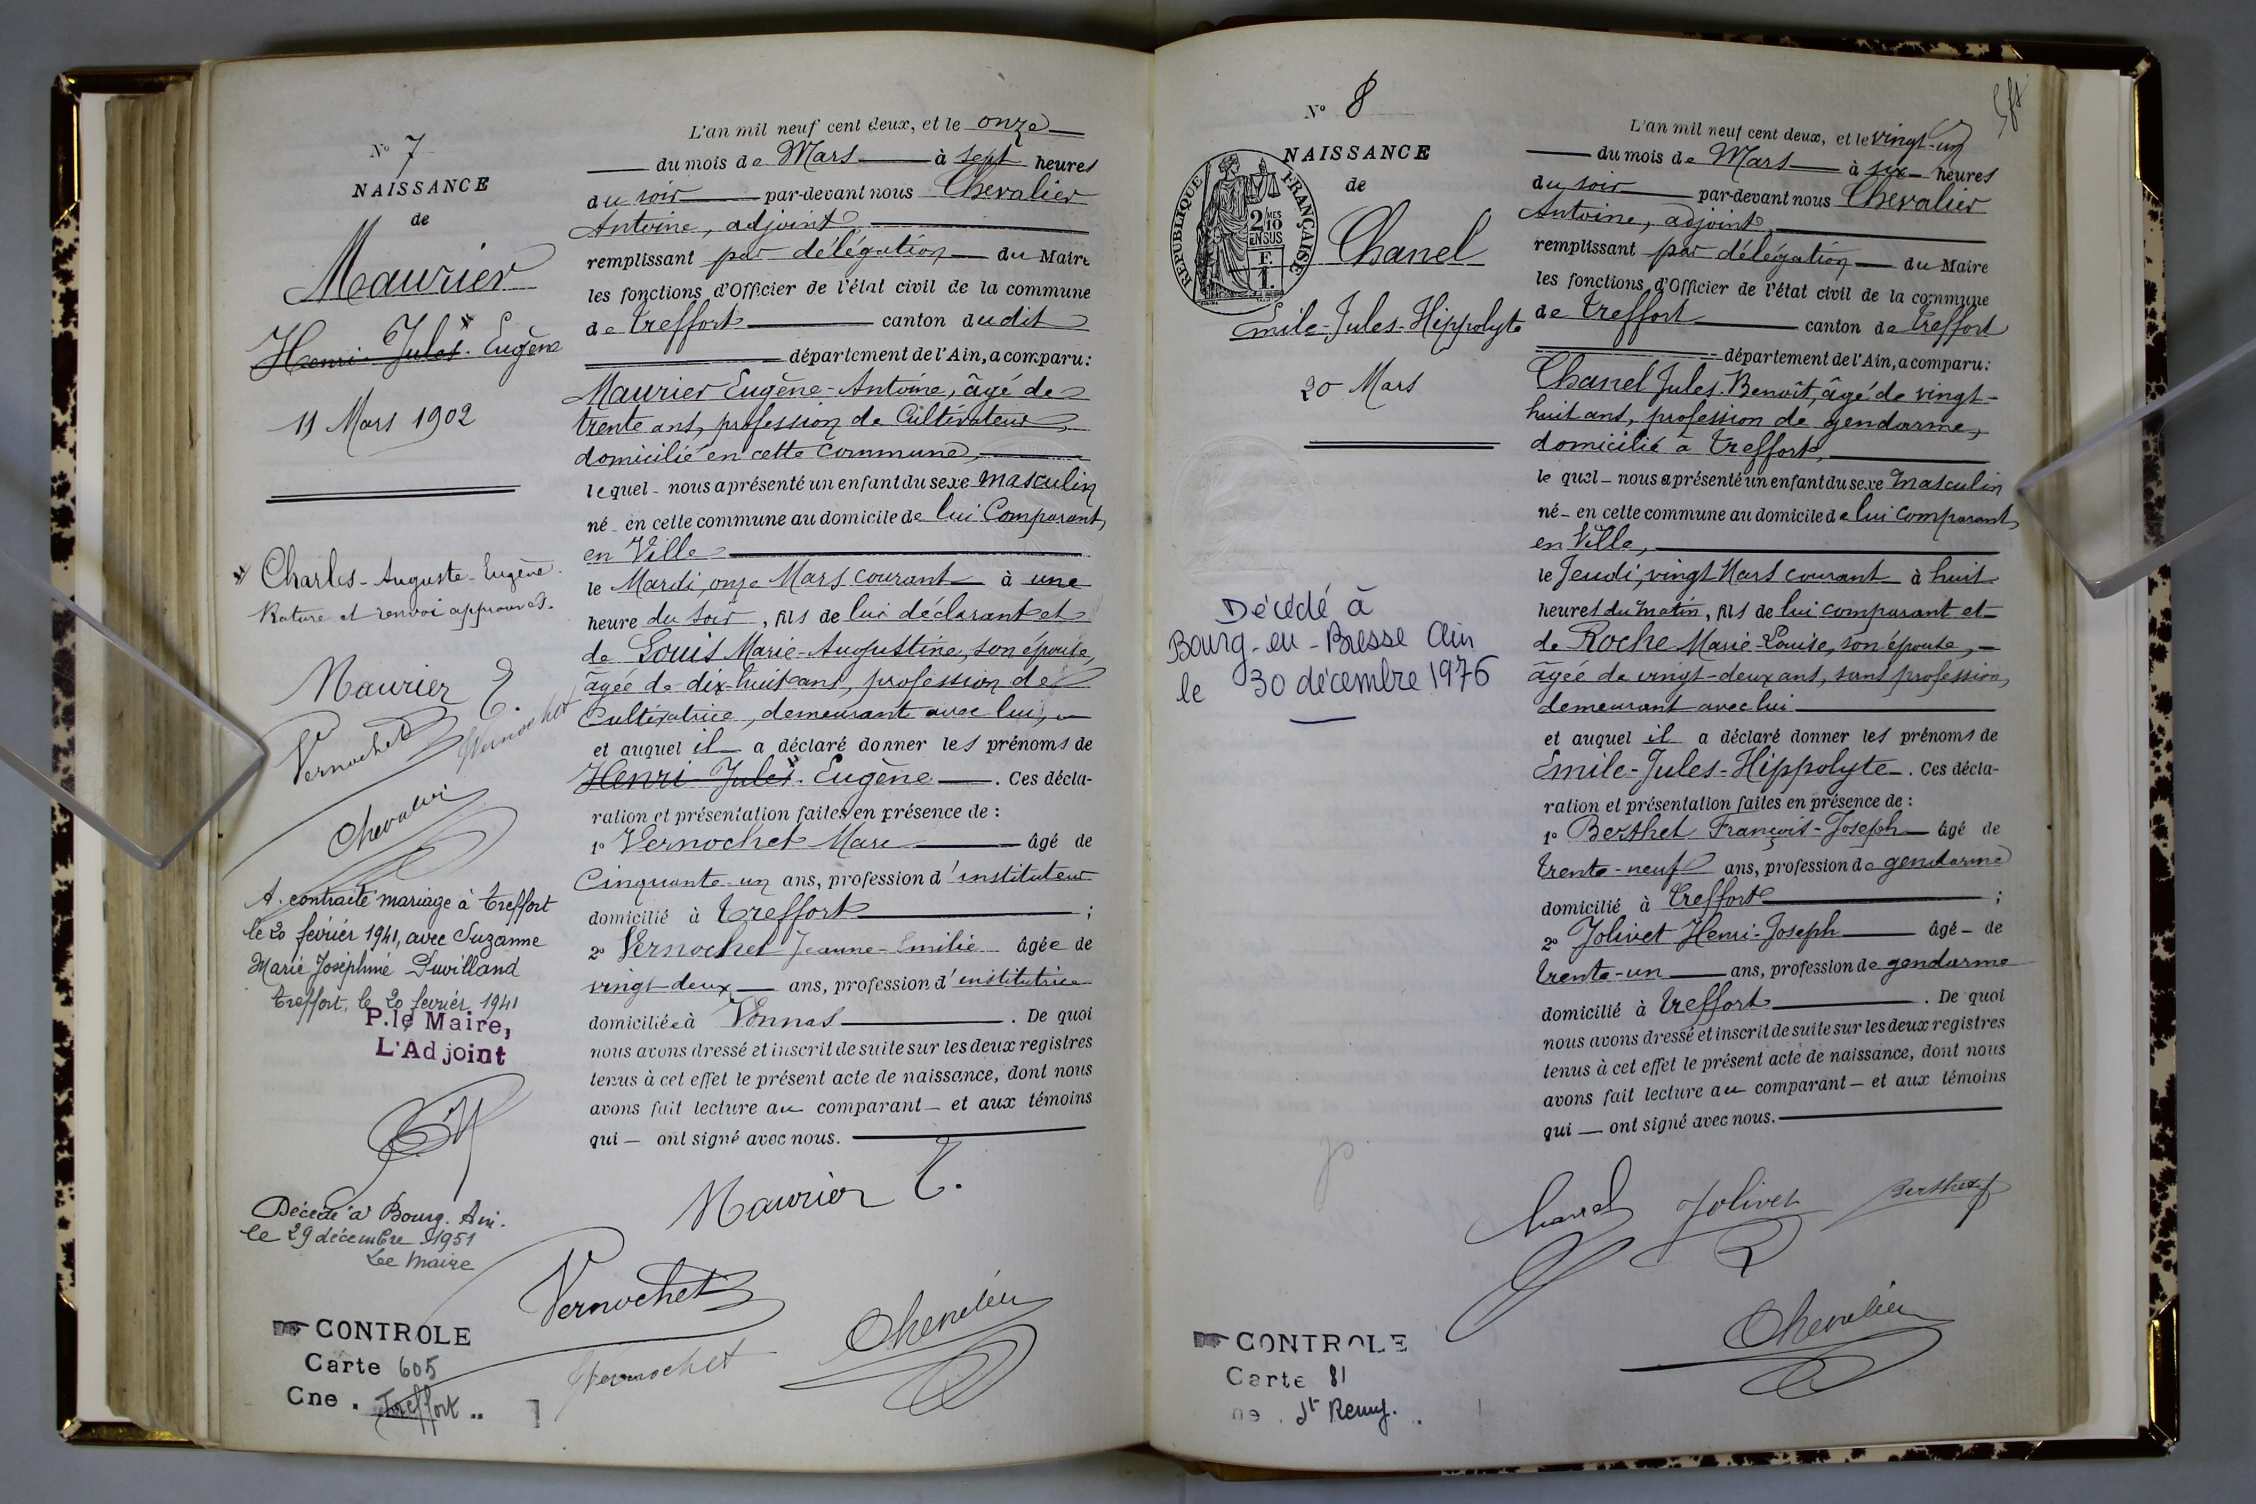 N° 7
NAISSANCE
de
Maurier
Henri-Jules-Eugène
11 Mars 1902
Charles-Auguste-Eugène.
Rature et renvoi approuvés.
Maurier E.
Vernochet
Vernochet
Chevalier
A contracté mariage à Treffort
le 20 février 1941, avec Suzanne
Marie Joséphine Duvilland
Treffort, le 20 février 1941
P. le Maire,
L'Adjoint
Décédé à Bourg. Ain.
le 29 décembre 1951
Le Maire
CONTROLE
Carte 605
Cne . Treffort ..
L'an mil neuf cent deux, et le onze
du mois de Mars à sept heures
du soir par-devant nous Chevalier
Antoine, adjoint,
remplissant par délégation du Maire
les fonctions d'Officier de l'état civil de la commune
de Treffort canton dudit
département de l'Ain, a comparu:
Maurier Eugène-Antoine, âgé de
trente ans, profession de Cultivateur,
domicilié en cette commune,
lequel nous a présenté un enfant du sexe masculin
né en cette commune au domicile de lui Comparant,
en Ville
le Mardi, onze Mars courant à une
heure du soir, fils de lui déclarant et
de Louis Marie-Augustine, son épouse,
âgée de dix-huit ans, profession de
Cultivatrice, demeurant avec lui,
et auquel il a déclaré donner les prénoms de
Henri-Jules-Eugène. Ces décla-
ration et présentation faites en présence de :
1° Vernochet Marc âgé de
Cinquante-un ans, profession d'instituteur
domicilié à Treffort ;
2° Vernochet Jeanne-Emilie âgée de
vingt-deux ans, profession d'institutrice
domiciliée à Vonnas. De quoi
nous avons dressé et inscrit de suite sur les deux registres
tenus à cet effet le présent acte de naissance, dont nous
avons fait lecture au comparant et aux témoins
qui ont signé avec nous.
Maurier E.
Vernochet
Vernochet
Chevalier
N° 8
NAISSANCE
de
RÉPUBLIQUE FRANÇAISE
2/10 MES
EN SUS
F.
1.
Chanel
Emile-Jules-Hippolyte
20 Mars
Décédé à
Bourg-en-Bresse Ain
le 30 décembre 1976
CONTROLE
Carte 81
ne . St Remy. .
L'an mil neuf cent deux, et le vingt-un
du mois de Mars à six heures
du soir par-devant nous Chevalier
Antoine, adjoint,
remplissant par délégation du Maire
les fonctions d'Officier de l'état civil de la commune
de Treffort canton de Treffort
département de l'Ain, a comparu:
Chanel Jules-Benoît, âgé de vingt-
huit ans, profession de gendarme,
domicilié à Treffort,
lequel nous a présenté un enfant du sexe masculin
né en cette commune au domicile de lui comparant,
en Ville,
le Jeudi, vingt Mars courant à huit
heures du matin, fils de lui comparant et
de Roche Marie-Louise, son épouse,
âgée de vingt-deux ans, sans profession,
demeurant avec lui
et auquel il a déclaré donner les prénoms de
Emile-Jules-Hippolyte. Ces décla-
ration et présentation faites en présence de :
1° Berthet François-Joseph âgé de
trente-neuf ans, profession de gendarme
domicilié à Treffort ;
2° Jolivet Henri-Joseph âgé de
trente-un ans, profession de gendarme
domicilié à Treffort. De quoi
nous avons dressé et inscrit de suite sur les deux registres
tenus à cet effet le présent acte de naissance, dont nous
avons fait lecture au comparant et aux témoins
qui ont signé avec nous.
Chanel Jolivet Berthet
Chevalier